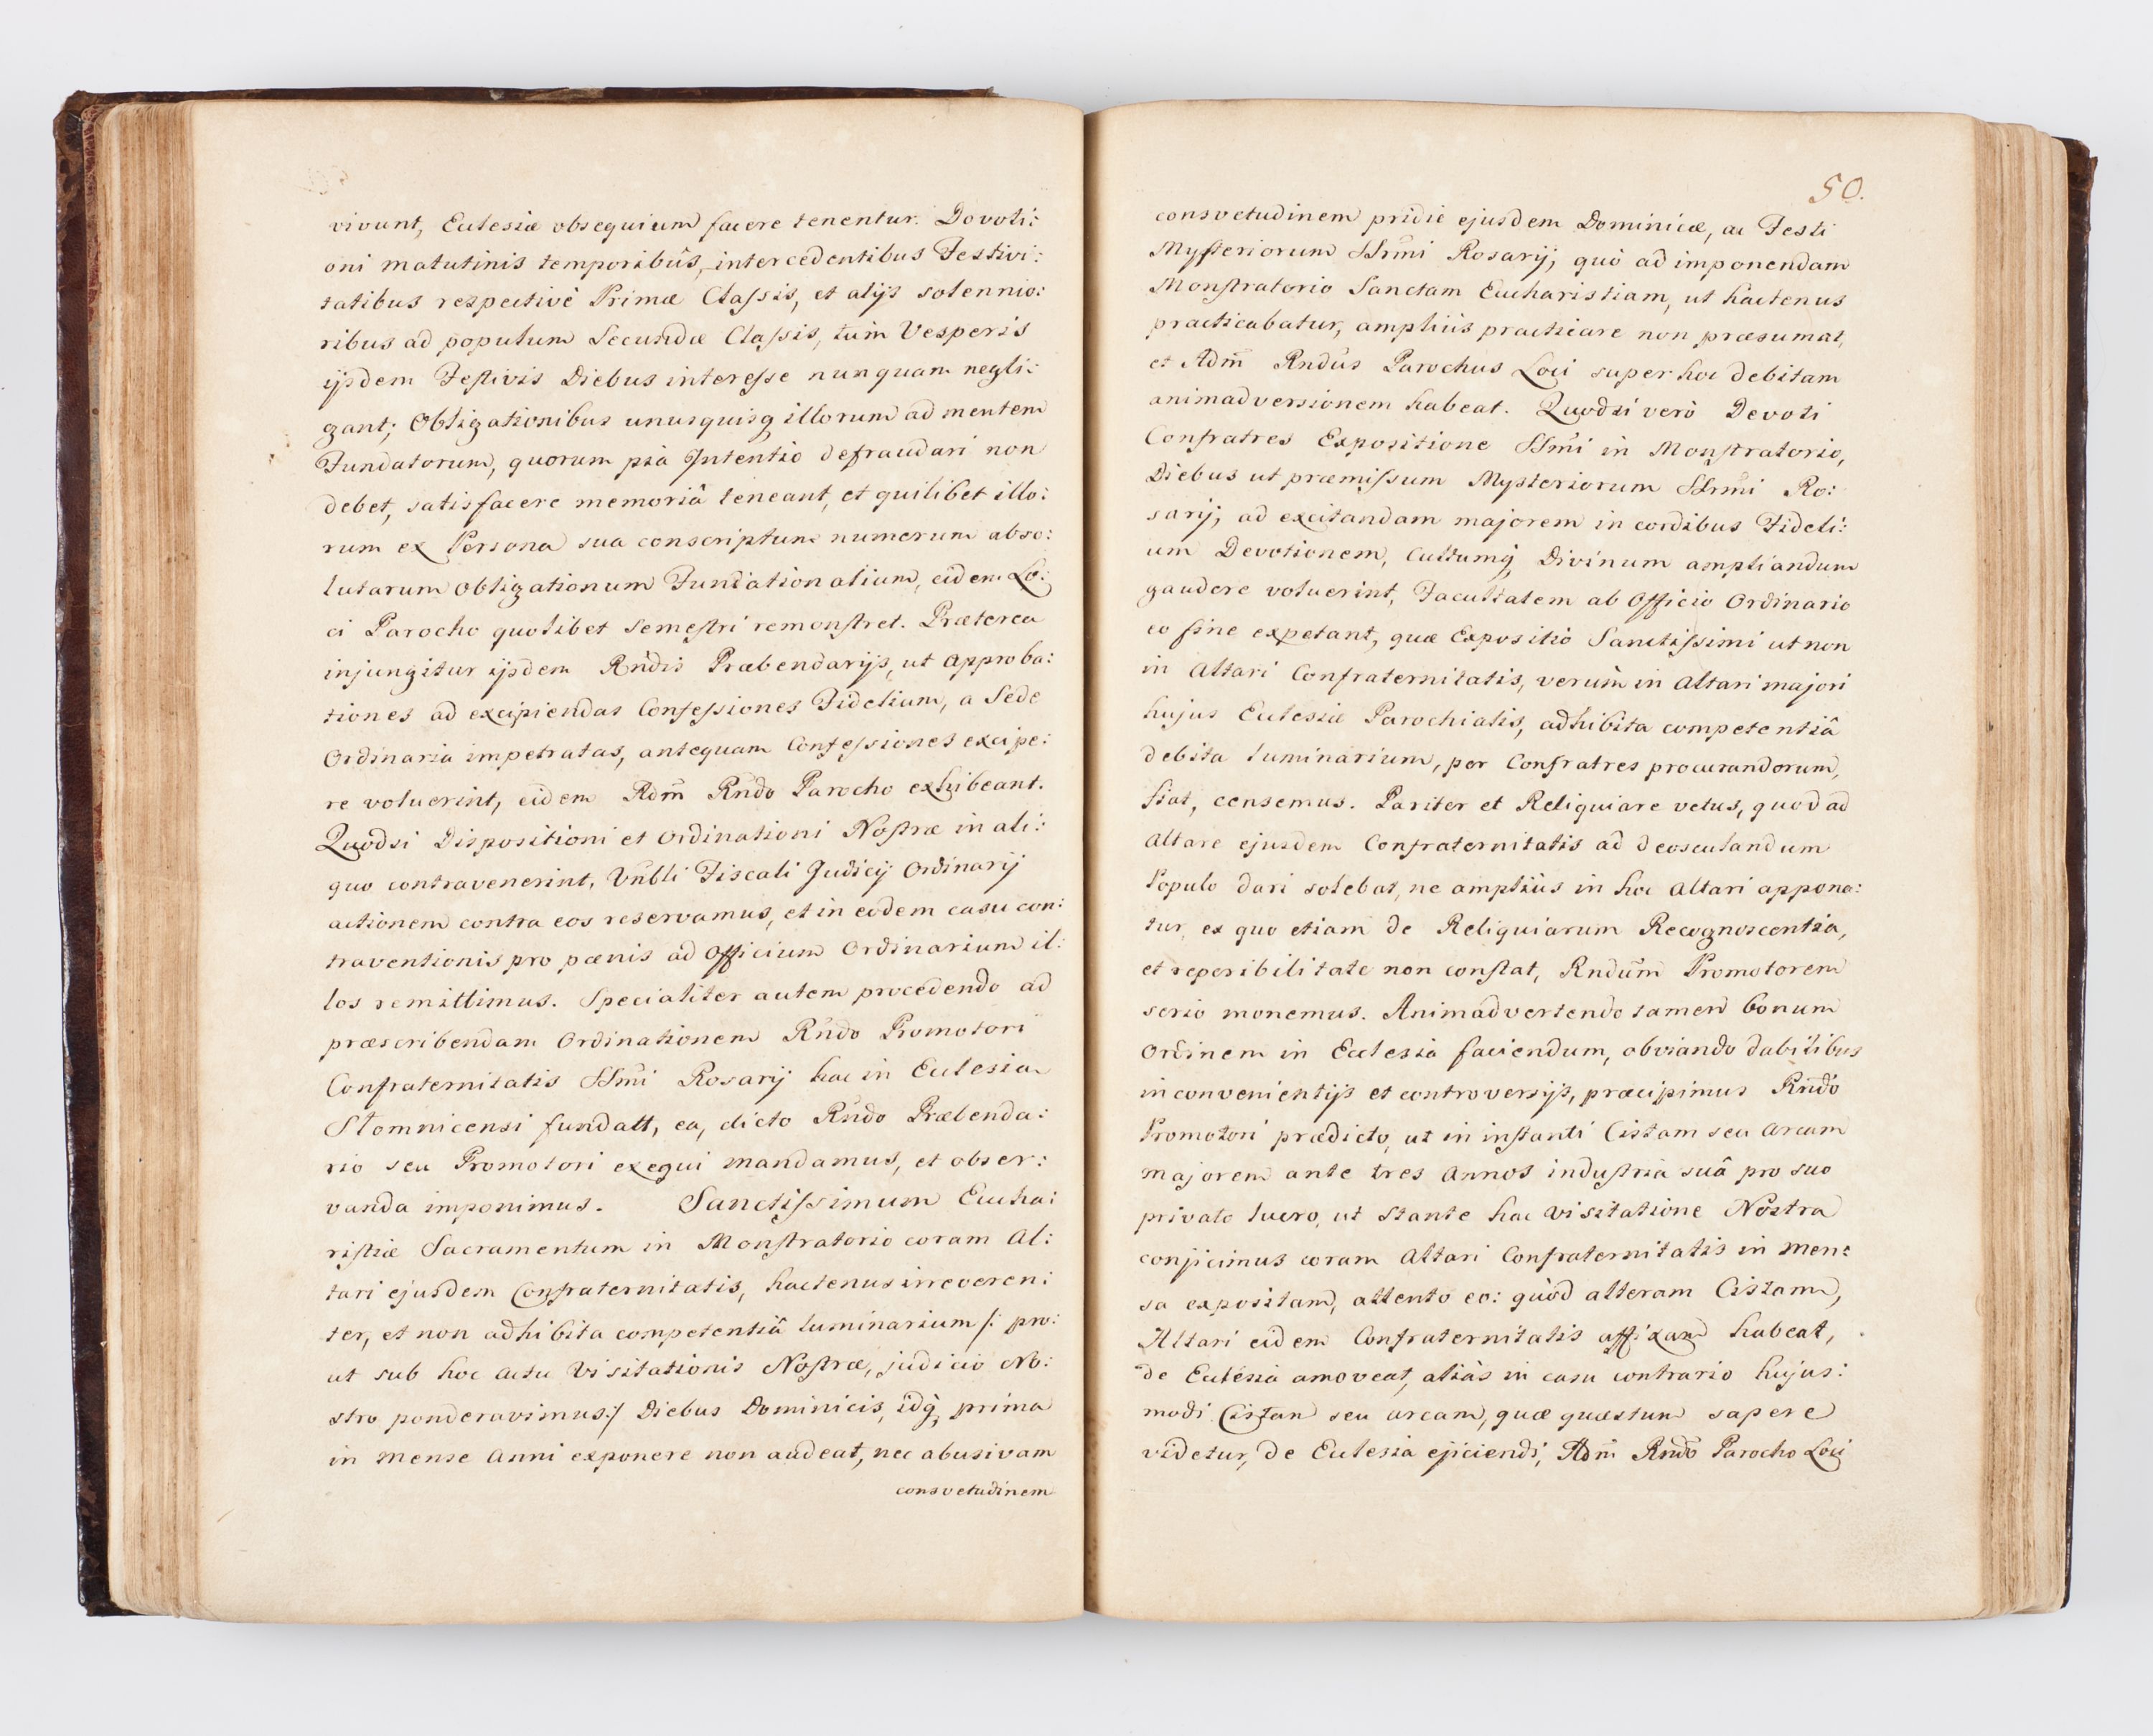 vivunt, Ecclesiæ obsequium facere tenentur. Devoti:
oni matutinis temporibûs, intercedentibus Festivi:
tatibus respectivè Primæ Classis, et alijs solennio:
ribus ad populum Secundæ Classis, tùm Vesperis
ijsdem Festivis Diebus interesse nunquam negli:
gant; Obligationibus unusquisq illorum ad mentem
Fundatorum, quorum pia Intentio defraudari non
debet, satisfacere memoriâ teneant, et quilibet illo:
rum ex Persona sua conscriptum numerum abso:
lutarum obligationum Fundationalium, eidem Lo:
ci Parocho quolibet semestri remonstret. Præterea
injungitur ijsdem Rndis Præbendarijs, ut approba:
tiones ad excipiendas Confessiones Fidelium, a Sede
Ordinaria impetratas, antequam Confessiones excipe:
re voluerint, eidem Adm̃ Rndo Parocho exhibeant.
Quodsi Dispositioni et Ordinationi Nostræ in ali:
quo contravenerint, Vnbli Fiscali Judicij Ordinarij
actionem contra eos reservamus, et in eodem casu con:
traventionis pro pœnis ad Officium Ordinarium il:
los remittimus. Specialiter autem procedendo ad
præscribendam Ordinationem Rndo Promotori
Confraternitatis SSmi Rosarij hac in Ecclesia
Słomnicensi fundatt, ea, dicto Rndo Præbenda:
rio seu Promotori exequi mandamus, et obser:
vanda imponimus. Sanctissimum Eucha:
ristiæ Sacramentum in Monstratorio coram Al:
tari ejusdem Confraternitatis, hactenus irreveren:
ter, et non adhibita competentiâ luminarium /: pro:
ut sub hoc actu Visitationis Nostræ, judicio No:
stro ponderavimus:/ Diebus Dominicis, idq, prima
in Mense Anni exponere non audeat, nec abusivam
consvetudinem
50.
consvetudinem pridie ejusdem Dominicæ, ac Festi
Mysteriorum SSrmi Rosarij, quò ad imponendam
Monstratorio Sanctam Eucharistiam, ut hactenus
practicabatur, ampliùs practicare non præsumat,
et Adm̃ Rndus Parochus Loci super hoc debitam
animadversionem habeat. Quodsi verò Devoti
Confratres Expositione SSmi in Monstratorio,
Diebus ut præmissum Mysteriorum SSrmi Ro:
sarij, ad excitandam majorem in cordibus Fideli:
um Devotionem, Cultumq Divinum ampliandum
gaudere voluerint, Facultatem ab Officio Ordinario
eo fine expetant, quæ Expositio Sanctissimi ut non
in Altari Confraternitatis, verùm in Altari majori
hujus Ecclesiæ Parochialis, adhibita competentiâ
debita luminarium, per Confratres procurandorum,
fiat, censemus. Pariter et Reliquiare vetus, quod ad
Altare ejusdem Confraternitatis ad deosculandum
Populo dari solebat, ne ampliùs in hoc Altari appona:
tur, ex quo etiam de Reliquiarum Recognoscentia,
et reperibilitate non constat, Rndum Promotorem
serio monemus. Animadvertendo tamen bonum
Ordinem in Ecclesia faciendum, obviando dabilibus
inconvenientijs et controversijs, præcipimus Rndo
Promotori prædicto, ut in instanti Cistam seu Arcam
majorem ante tres Annos industria suâ pro suo
privato lucro, ut stante hac Visitatione Nostra
conjicimus coram Altari Confraternitatis in Men:
sa expositam, attento eo: quòd alteram Cistam,
Altari eidem Confraternitatis affixam habeat,
de Ecclesia amoveat, aliàs in casu contrario hujus:
modi Cistam seu arcam, quæ quæstum sapere
videtur, de Ecclesia ejiciendi, Adm̃ Rndo Parocho Loci